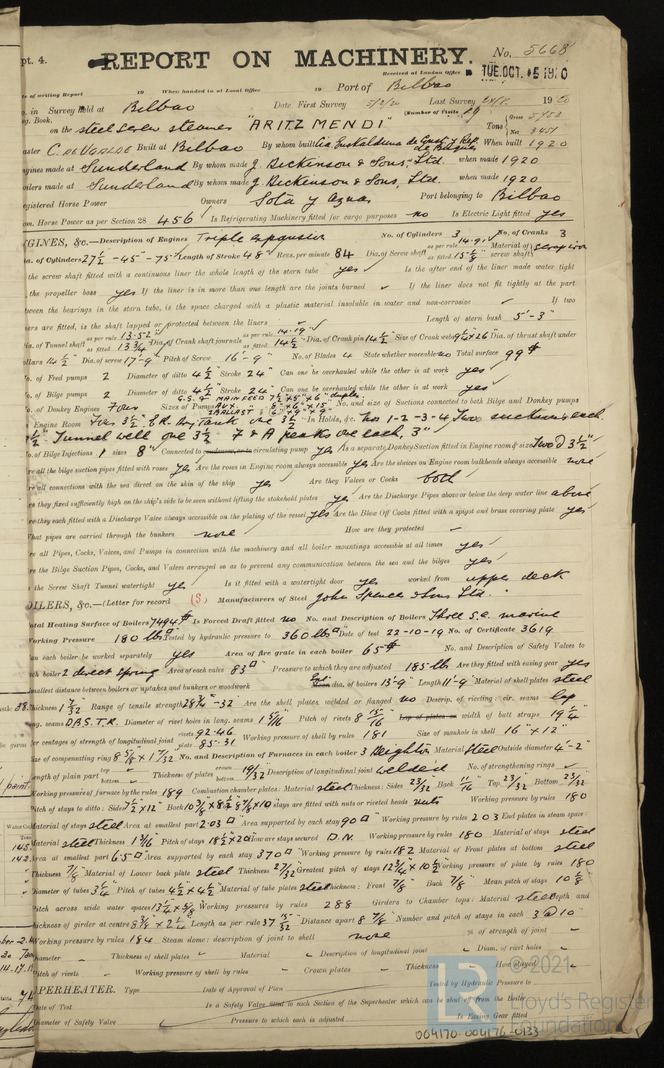 pt. 4.
REPORT ON MACHINERY.
No. 5668
Received at London Office
TUE. OCT. 5 1920
te of writing Report 19 When handed in at Local Office 19 Port of Bilbao
in Survey held at Bilbao Date, First Survey 5/2/20 Last Survey 19 20
g. Book. (Number of Visits 29
on the steel screw steamer "ARITZ MENDI" Tons Gross Net 3451
aster C. de Ugalde Built at Bilbao By whom built Cia Euskalduna de Const y Rep de Buques When built 1920
ngines made at Sunderland By whom made J. Dickinson & Sons, Ltd. when made 1920
oilers made at Sunderland By whom made J. Dickinson & Sons, Ltd. when made 1920
egistered Horse Power Owners Sota y Aznar Port belonging to Bilbao
om. Horse Power as per Section 28 456 Is Refrigerating Machinery fitted for cargo purposes no Is Electric Light fitted yes
GINES, &c.—Description of Engines Triple expansion No. of Cylinders 3 No. of Cranks 3
a. of Cylinders 27½ - 45 - 75 Length of Stroke 48 Revs. per minute 84 Dia. of Screw shaft as per rule 14.9 as fitted 15⅛ Material of screw shaft scrap iron
the screw shaft fitted with a continuous liner the whole length of the stern tube yes Is the after end of the liner made water tight
the propeller boss yes If the liner is in more than one length are the joints burned If the liner does not fit tightly at the part
tween the bearings in the stern tube, is the space charged with a plastic material insoluble in water and non-corrosive If two
ers are fitted, is the shaft lapped or protected between the liners Length of stern bush 5'-3"
ia. of Tunnel shaft as per rule 13.52 as fitted 13¾ Dia. of Crank shaft journals as per rule 14.19 as fitted 14½ Dia. of Crank pin 14½ Size of Crank webs 9½ x 26 Dia. of thrust shaft under
ollars 14½ Dia. of screw 17'-9" Pitch of Screw 16'-9" No. of Blades 4 State whether moveable no Total surface 99
o. of Feed pumps 2 Diameter of ditto 4½ Stroke 24" Can one be overhauled while the other is at work yes
o. of Bilge pumps 2 Diameter of ditto 4½ Stroke 24" Can one be overhauled while the other is at work yes
o. of Donkey Engines Four Sizes of Pumps No. and size of Suctions connected to both Bilge and Donkey pumps
Engine Room Four 3½" E.R. Dry Tank one 3½" In Holds, &c. Nos 1-2-3-4 Two suctions each
½" Tunnel well one 3½ F & A peaks one each, 3"
o. of Bilge Injections 1 sizes 8" Connected to circulating pump yes Is a separate Donkey Suction fitted in Engine room & size Two @ 3½"
re all the bilge suction pipes fitted with roses yes Are the roses in Engine room always accessible yes Are the sluices on Engine room bulkheads always accessible none
re all connections with the sea direct on the skin of the ship yes Are they Valves or Cocks both
re they fixed sufficiently high on the ship's side to be seen without lifting the stokehold plates yes Are the Discharge Pipes above or below the deep water line above
re they each fitted with a Discharge Valve always accessible on the plating of the vessel yes Are the Blow Off Cocks fitted with a spigot and brass covering plate yes
hat pipes are carried through the bunkers none How are they protected
re all Pipes, Cocks, Valves, and Pumps in connection with the machinery and all boiler mountings accessible at all times yes
re the Bilge Suction Pipes, Cocks, and Valves arranged so as to prevent any communication between the sea and the bilges yes
the Screw Shaft Tunnel watertight yes Is it fitted with a watertight door yes worked from upper deck
OILERS, &c.—(Letter for record (S) Manufacturers of Steel John Spence & Sons Ltd.
otal Heating Surface of Boilers 7494 Is Forced Draft fitted no No. and Description of Boilers Three S.E. marine
orking Pressure 180 lbs Tested by hydraulic pressure to 360 lbs Date of test 22-10-19 No. of Certificate 3619
an each boiler be worked separately yes Area of fire grate in each boiler 65 No. and Description of Safety Valves to
ch boiler 2 direct Spring Area of each valve 83 Pressure to which they are adjusted 185 lbs Are they fitted with easing gear yes
mallest distance between boilers or uptakes and bunkers or woodwork dia. of boilers 13'-9" Length 11'-9" Material of shell plates steel
hickness 1 7/32 Range of tensile strength 28¾-32 Are the shell plates welded or flanged no Descrip. of riveting: cir. seams lap
ng. seams D.B.S. T.R. Diameter of rivet holes in long. seams 1 5/16 Pitch of rivets 8 15/16 width of butt straps 19¼
er centages of strength of longitudinal joint rivets 92.46 plate 85.31 Working pressure of shell by rules 181 Size of manhole in shell 16" x 12"
ize of compensating ring 8⅝ x 1 7/32 No. and Description of Furnaces in each boiler 3 Deighton Material steel Outside diameter 4'-2"
ength of plain part top bottom Thickness of plates crown bottom 19/32 Description of longitudinal joint welded No. of strengthening rings
orking pressure of furnace by the rules 189 Combustion chamber plates: Material steel Thickness: Sides 23/32 Back 11/16 Top 23/32 Bottom 23/32
itch of stays to ditto: Sides 7½ x 12 Back If stays are fitted with nuts or riveted heads nuts Working pressure by rules 180
aterial of stays steel Area at smallest part 2.03 Area supported by each stay 90 Working pressure by rules 203 End plates in steam space:
aterial steel Thickness 1 3/16 Pitch of stays 18½ x 20 How are stays secured D.N. Working pressure by rules 180 Material of stays steel
rea at smallest part 6.50 Area supported by each stay 370 Working pressure by rules 182 Material of Front plates at bottom steel
hickness ⅞ Material of Lower back plate steel Thickness 27/32 Greatest pitch of stays 12¾ x 10½ Working pressure of plate by rules 180
iameter of tubes 3¼ Pitch of tubes 4½ x 4½ Material of tube plates steel Thickness: Front ⅞ Back ⅞ Mean pitch of stays 10⅛
itch across wide water spaces Working pressures by rules 288 Girders to Chamber tops: Material steel Depth and
hickness of girder at centre 8¾ x 2¼ Length as per rule 37 15/32 Distance apart 8⅞ Number and pitch of stays in each 3 @ 10
orking pressure by rules 184 Steam dome: description of joint to shell none % of strength of joint
iameter Thickness of shell plates Material Description of longitudinal joint Diam. of rivet holes
itch of rivets Working pressure of shell by rules Crown plates Thickness How stayed
UPERHEATER. Type Date of Approval of Plan Tested by Hydraulic Pressure to
ate of Test Is a Safety Valve fitted to each Section of the Superheater which can be shut off from the Boiler
iameter of Safety Valve Pressure to which each is adjusted Is Easing Gear fitted
© 2021
LR
Lloyd's Register
Foundation
004170-004176-0133